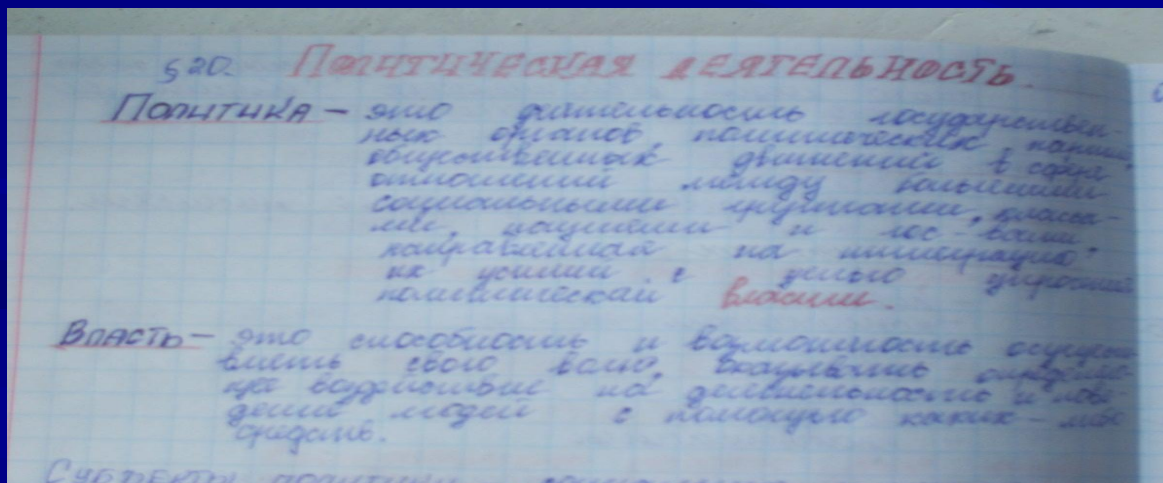 § 20. Политическая деятельность.
Политика – это деятельность государствен-
ных органов, политических партий,
общественных движений в сфере
отношений между большими
социальными группами, класса-
ми, нациями и гос-вами,
направленная на интеграцию
их усилий с целью упрочения
политической власти.
Власть – это способность и возможность осущест
влять свою волю, оказывать определяю
щее воздействие на деятельность и пове
дение людей с помощью каких-либо
средств.
Субъекты политики